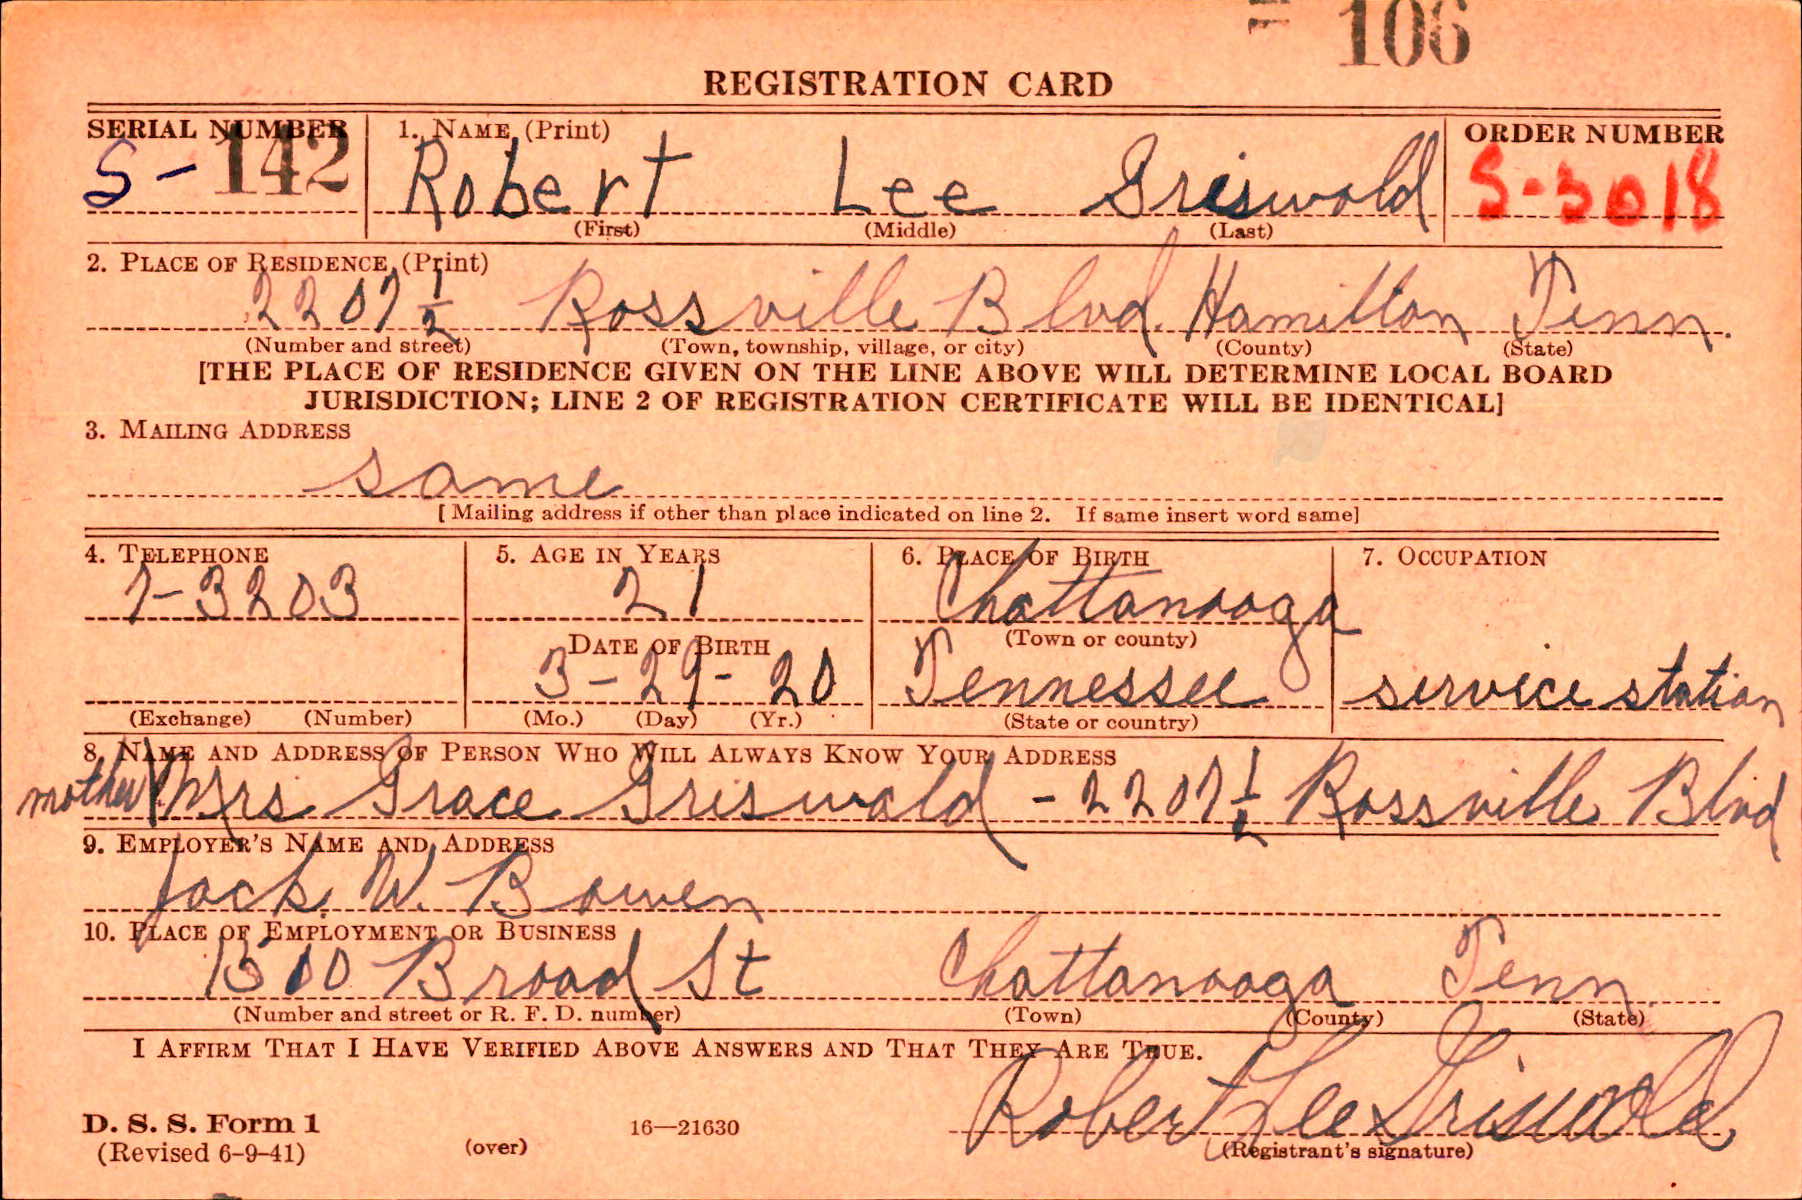 106
REGISTRATION CARD
SERIAL NUMBER 1. NAME (Print) ORDER NUMBER
S-142 Robert Lee Griswold S-3018
(First) (Middle) (Last)
2. PLACE OF RESIDENCE (Print)
2207 1/2 Rossville Blvd. Hamilton Tenn.
(Number and street) (Town, township, village, or city) (County) (State)
[THE PLACE OF RESIDENCE GIVEN ON THE LINE ABOVE WILL DETERMINE LOCAL BOARD
JURISDICTION; LINE 2 OF REGISTRATION CERTIFICATE WILL BE IDENTICAL]
3. MAILING ADDRESS
same
[Mailing address if other than place indicated on line 2. If same insert word same]
4. TELEPHONE 5. AGE IN YEARS 6. PLACE OF BIRTH 7. OCCUPATION
7-3203 21 Chattanooga
DATE OF BIRTH (Town or county)
3-29-20 Tennessee service station
(Exchange) (Number) (Mo.) (Day) (Yr.) (State or country)
8. NAME AND ADDRESS OF PERSON WHO WILL ALWAYS KNOW YOUR ADDRESS
mother Mrs Grace Griswald - 2207 1/2 Rossville Blvd
9. EMPLOYER'S NAME AND ADDRESS
Jack W. Bowen
10. PLACE OF EMPLOYMENT OR BUSINESS
1500 Broad St Chattanooga Tenn.
(Number and street or R. F. D. number) (Town) (County) (State)
I AFFIRM THAT I HAVE VERIFIED ABOVE ANSWERS AND THAT THEY ARE TRUE.
Robert Lee Griswold
D. S. S. Form 1
(Revised 6-9-41) (over) 16—21630 (Registrant's signature)